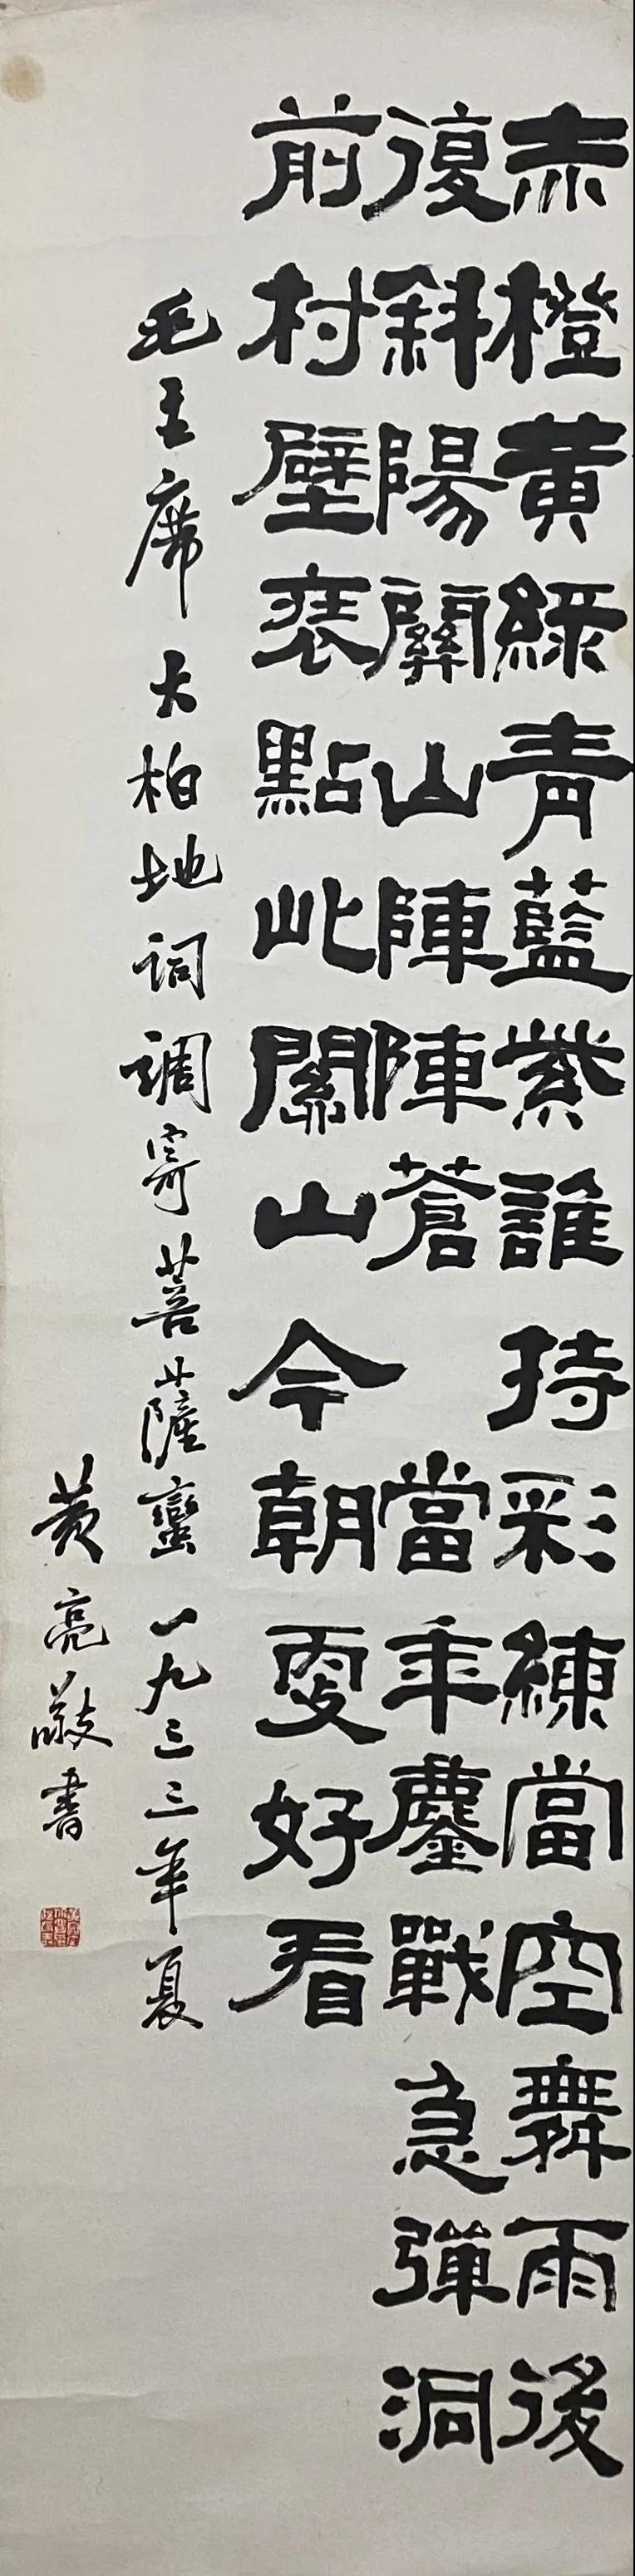 赤橙黃綠青藍紫誰持彩練當空舞雨後
復斜陽關山陣陣蒼 當年鏖戰急彈洞
前村壁裝點此關山今朝更好看
毛主席大柏地詞調寄菩薩蠻 一九三三年夏
黃亮敬書